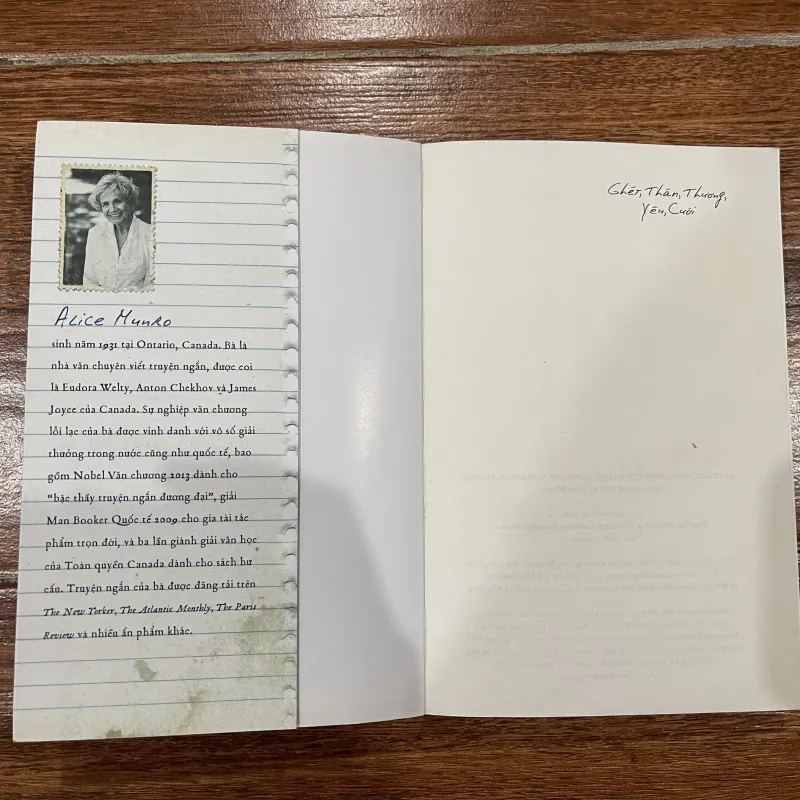 Alice Munro
sinh năm 1931 tại Ontario, Canada. Bà là
nhà văn chuyên viết truyện ngắn, được coi
là Eudora Welty, Anton Chekhov và James
Joyce của Canada. Sự nghiệp văn chương
lỗi lạc của bà được vinh danh với vô số giải
thưởng trong nước cũng như quốc tế, bao
gồm Nobel Văn chương 2013 dành cho
“bậc thầy truyện ngắn đương đại”, giải
Man Booker Quốc tế 2009 cho gia tài tác
phẩm trọn đời, và ba lần giành giải văn học
của Toàn quyền Canada dành cho sách hư
cấu. Truyện ngắn của bà được đăng tải trên
The New Yorker, The Atlantic Monthly, The Paris
Review và nhiều ấn phẩm khác.
Ghét, Thân, Thương,
Yêu, Cưới